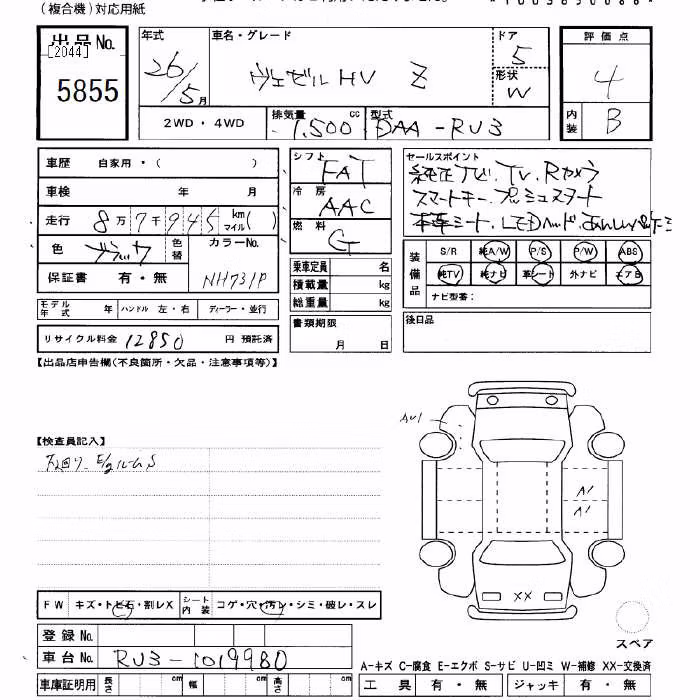 (複合機)対応用紙
出品No.
[2044]
5855
年式
26/5月
車名・グレード
ヴェゼルHV Z
ドア
5
形状
W
評価点
4
内装
B
2WD・4WD
排気量 cc
1,500
型式
DAA-RU3
車歴 自家用・( )
車検 年 月
走行 8万7千945 km マイル( )
色 ブラック
色替
カラーNo.
NH731P
保証書 有・無
シフト
FAT
冷房
AAC
燃料
G
乗車定員 名
積載量 kg
総重量 kg
書類期限
月 日
セールスポイント
純正ナビ.TV.Rカメラ
スマートキー.プッシュスタート
本革シート.LEDヘッド.あんしんパッケ
装備品
S/R 純A/W P/S P/W ABS
純TV 純ナビ 革シート 外ナビ エアB
ナビ型番:
後日品
モデル年式 年 ハンドル 左・右 ディーラー・並行
リサイクル料金 12850 円 預託済
【出品店申告欄(不良箇所・欠品・注意事項等)】
【検査員記入】
下回り E/gルームS
A1
A1
XX
FW キズ・トビ石・割レX
シート内装 コゲ・穴・汚レ・シミ・破レ・スレ
スペア
登録No.
車台No. RU3-1019980
A-キズ C-腐食 E-エクボ S-サビ U-凹ミ W-補修 XX-交換済
車庫証明用 長さ cm 幅 cm 高さ cm
工具 有・無 ジャッキ 有・無